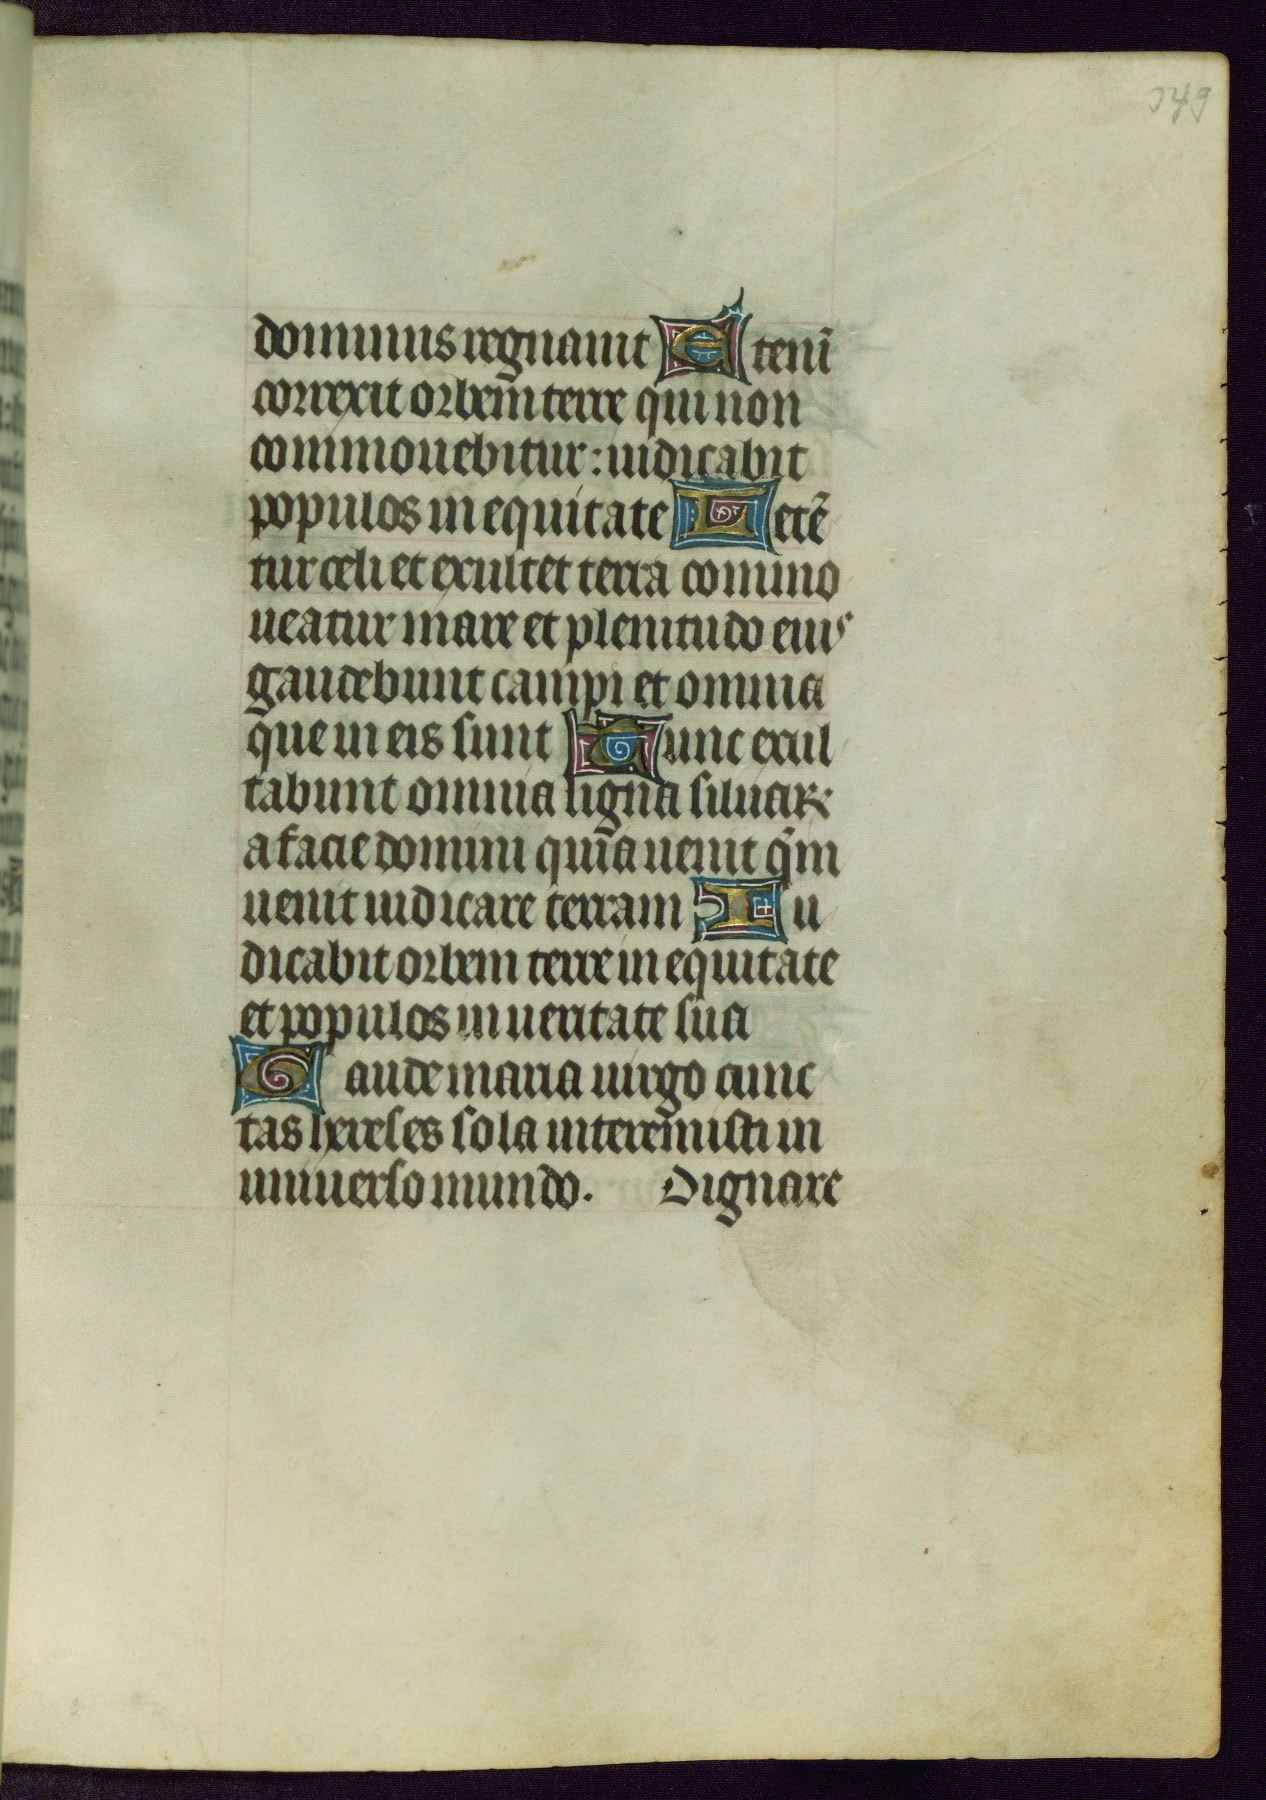 349
dominus regnauit Etenī
correxit orbem̄ terre qui non
commouebitur: iudicabit
populos in equitate Letē
tur celi et exultet terra commo
ueatur mare et plenitudo eius
gaudebunt campi et omnia
que in eis sunt Tunc exul
tabunt omnia ligna siluaꝝ
a facie domini quīa uenit qm̄
uenit iudicare terram Iu
dicabit orbem terre in equitate
et populos in ueritate sua
Gaude maria uirgo cunc
tas hereses sola interem̄isti in
uniuerso mundo. Dignare